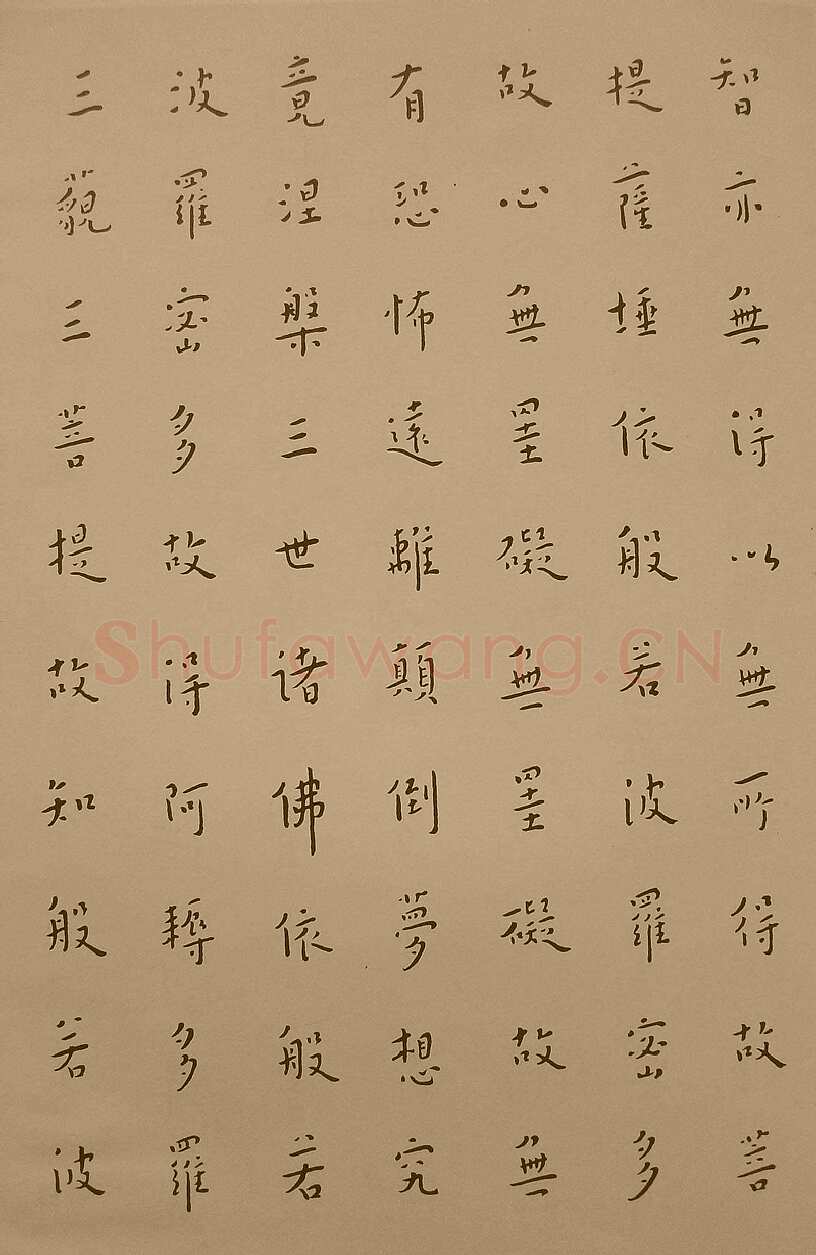 智亦無得以無所得故菩
提薩埵依般若波羅蜜多
故心無罣礙無罣礙故無
有恐怖遠離顛倒夢想究
竟涅槃三世諸佛依般若
波羅蜜多故得阿耨多羅
三藐三菩提故知般若波
Shufawang.CN